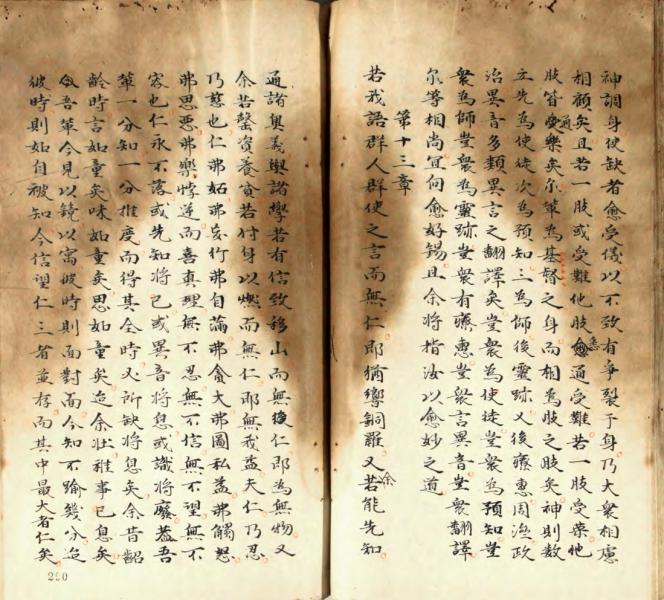 神調身使缺者愈受儀以不致有爭裂于身乃大衆相慮
相顧矣且若一肢或受難他肢愈通受難若一肢受榮他
肢皆通受樂矣尔輩為基督之身而相為肢之肢矣神則数
立先為使徒次為預知三為師後靈跡又後療恵周濟政
治異音多類異言之翻譯矣豈衆為使徒豈衆為預知豈
衆為師豈衆為靈跡豈衆有療恵豈衆言異音豈衆翻譯
尔等相尚冝向愈好錫且余將指汝以愈妙之道
第十三章
若我語群人群使之言而無仁即猶響銅羅又若余能先知
通諸奥義與諸學若有信致移山而無仁即為無物又
余若罄資養貧若付身以燃而無仁即無我益夫仁乃忍
乃慈也仁弗妬弗妄行弗自滿弗貪大弗圖私益弗觸怒
弗思悪弗樂悖逆而喜真理無不忍無不信無不望無不
容也仁永不落或先知將已或異音將息或識將廢葢吾
輩一分知一分推度而得其全時又所缺將息矣余昔齠
齡時言如童矣味如童矣思如童矣迨余壮稚事已息矣
吾輩今見以鏡以寓彼時則面對面今知不踰幾分迨
彼時則如自被知今信望仁三者並存而其中最大者仁矣
290